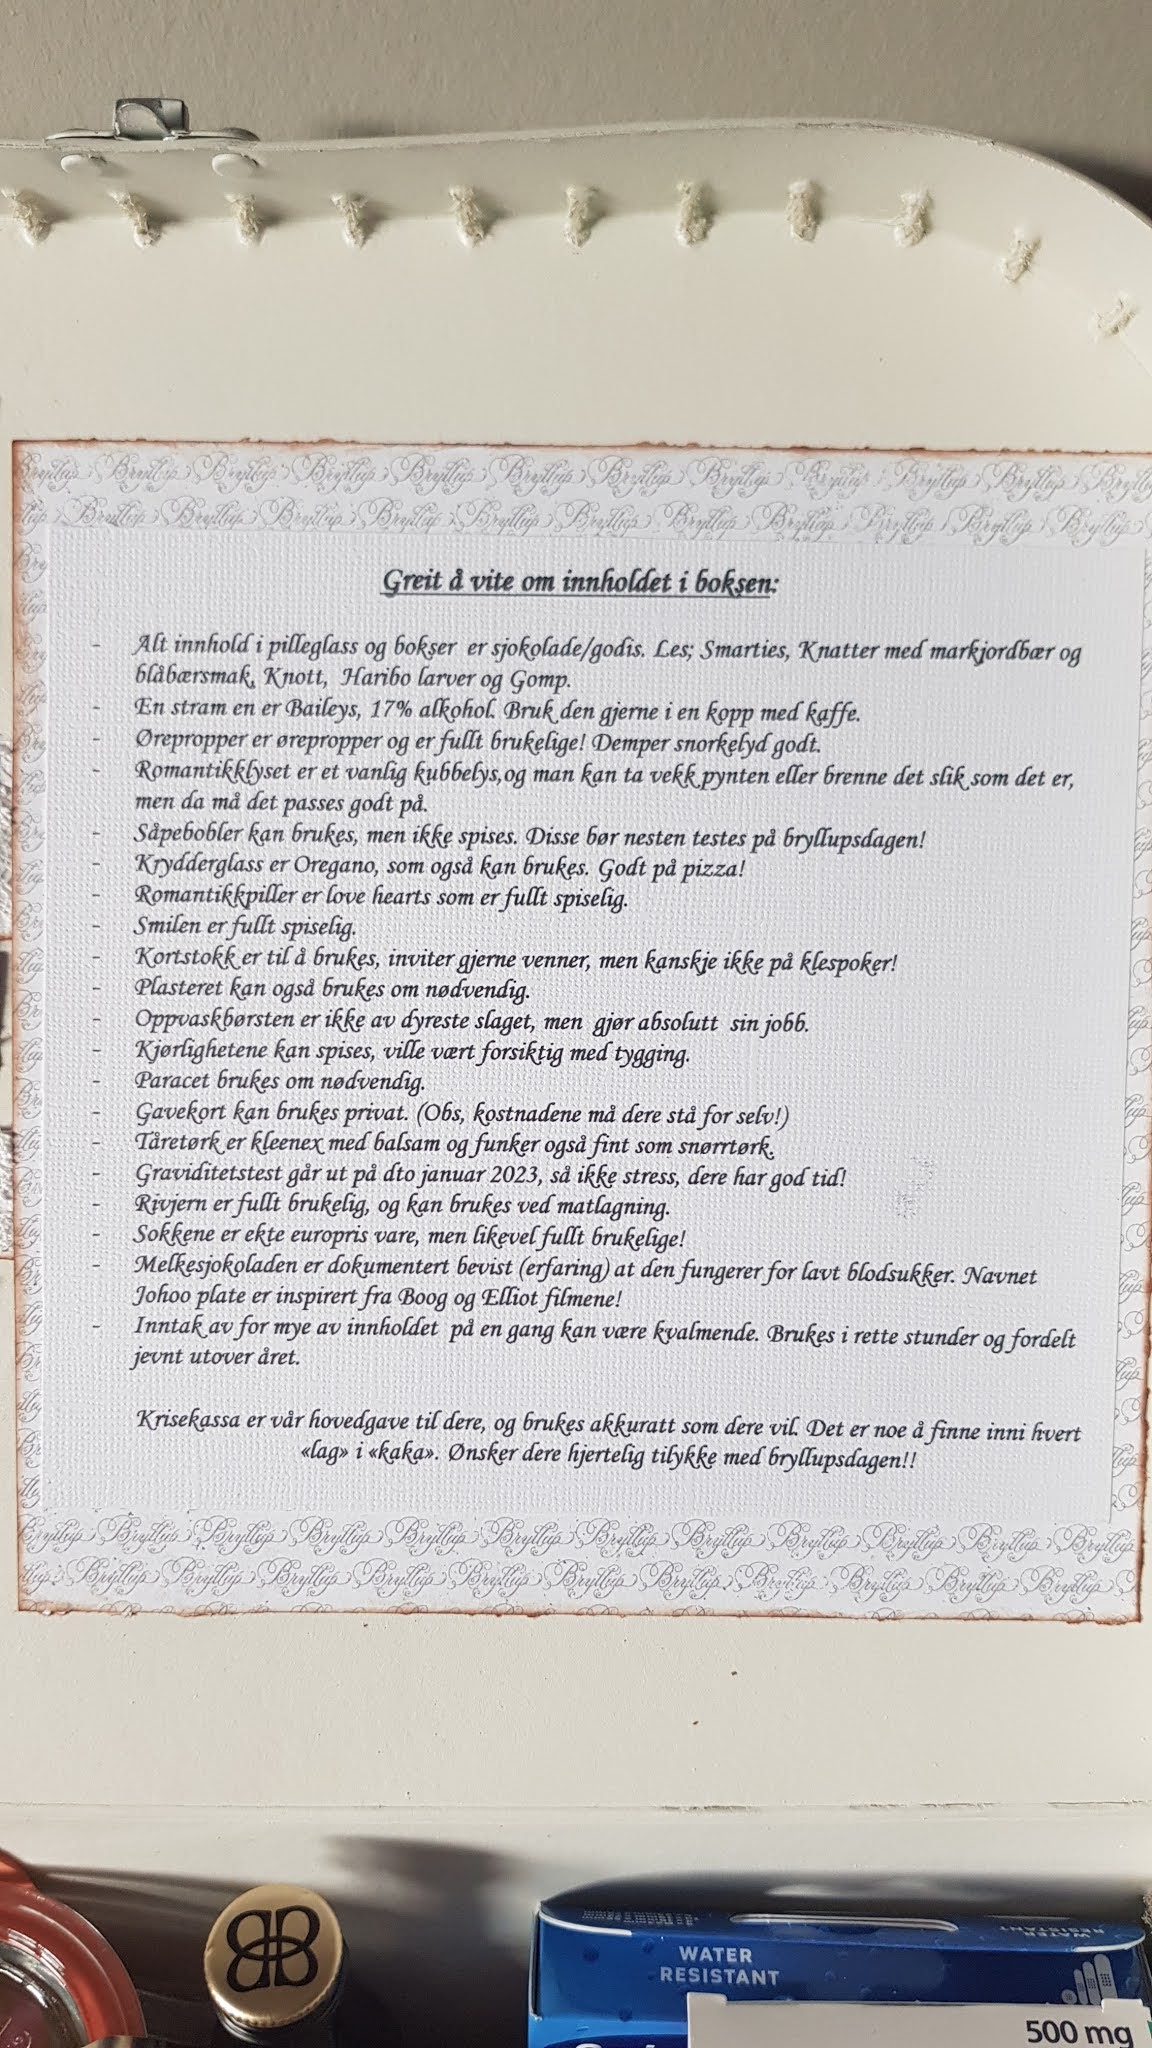 Bryllup Bryllup Bryllup Bryllup Bryllup Bryllup Bryllup Bryllup Bryllup Bryllup Bryllup
Bryllup Bryllup Bryllup Bryllup Bryllup Bryllup Bryllup Bryllup Bryllup Bryllup Bryllup
Greit å vite om innholdet i boksen:
- Alt innhold i pilleglass og bokser er sjokolade/godis. Les; Smarties, Knatter med markjordbær og
blåbærsmak, Knott, Haribo larver og Gomp.
- En stram en er Baileys, 17% alkohol. Bruk den gjerne i en kopp med kaffe.
- Ørepropper er ørepropper og er fullt brukelige! Demper snorkelyd godt.
- Romantikklyset er et vanlig kubbelys,og man kan ta vekk pynten eller brenne det slik som det er,
men da må det passes godt på.
- Såpebobler kan brukes, men ikke spises. Disse bør nesten testes på bryllupsdagen!
- Krydderglass er Oregano, som også kan brukes. Godt på pizza!
- Romantikkpiller er love hearts som er fullt spiselig.
- Smilen er fullt spiselig.
- Kortstokk er til å brukes, inviter gjerne venner, men kanskje ikke på klespoker!
- Plasteret kan også brukes om nødvendig.
- Oppvaskbørsten er ikke av dyreste slaget, men gjør absolutt sin jobb.
- Kjørlighetene kan spises, ville vært forsiktig med tygging.
- Paracet brukes om nødvendig.
- Gavekort kan brukes privat. (Obs, kostnadene må dere stå for selv!)
- Tåretørk er kleenex med balsam og funker også fint som snørrtørk.
- Graviditetstest går ut på dto januar 2023, så ikke stress, dere har god tid!
- Rivjern er fullt brukelig, og kan brukes ved matlagning.
- Sokkene er ekte europris vare, men likevel fullt brukelige!
- Melkesjokoladen er dokumentert bevist (erfaring) at den fungerer for lavt blodsukker. Navnet
Johoo plate er inspirert fra Boog og Elliot filmene!
- Inntak av for mye av innholdet på en gang kan være kvalmende. Brukes i rette stunder og fordelt
jevnt utover året.
Krisekassa er vår hovedgave til dere, og brukes akkuratt som dere vil. Det er noe å finne inni hvert
«lag» i «kaka». Ønsker dere hjertelig tilykke med bryllupsdagen!!
Bryllup Bryllup Bryllup Bryllup Bryllup Bryllup Bryllup Bryllup Bryllup Bryllup Bryllup
Bryllup Bryllup Bryllup Bryllup Bryllup Bryllup Bryllup Bryllup Bryllup Bryllup
WATER
RESISTANT
WATER
RESISTANT
500 mg